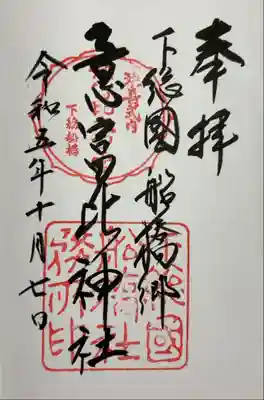 奉拝
下総國船橋郷
延喜式内
意富比神社
下総船橋
令和五年十月廿日